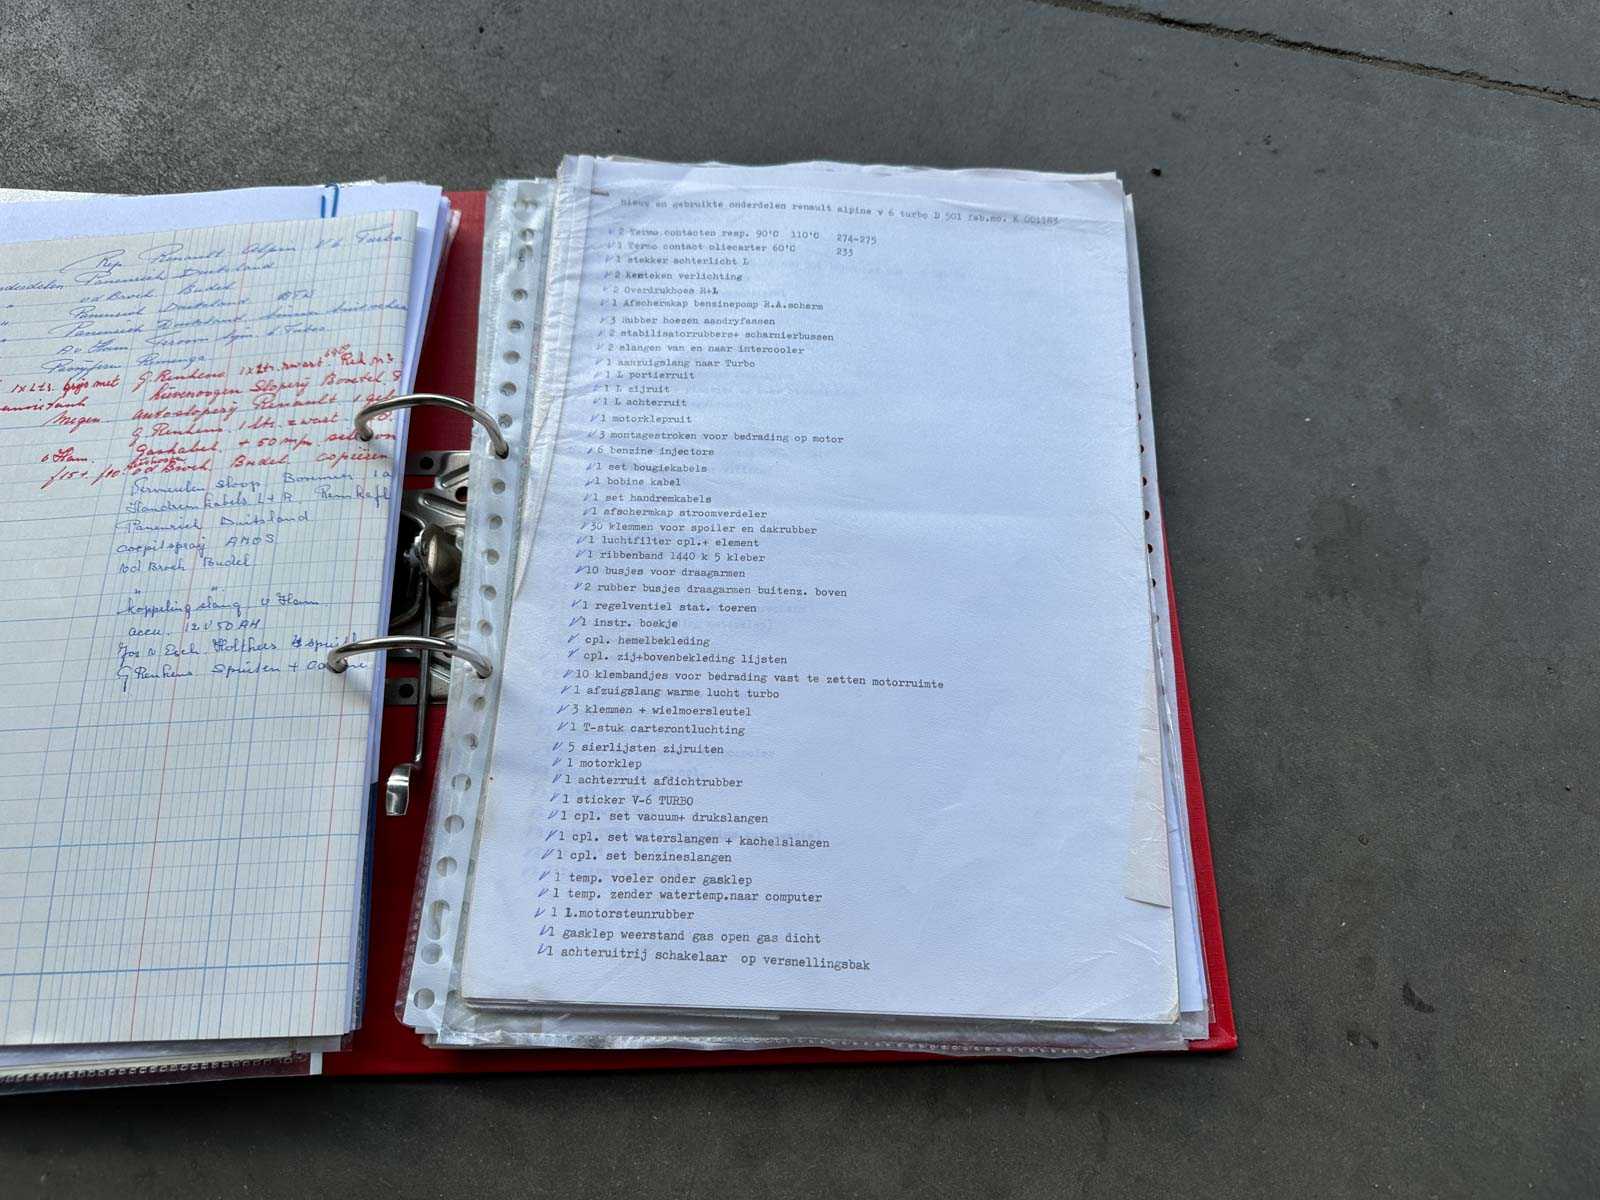 Rep Renault Alpin V6 Turbo
Panenrich Duitsland
v d Broek Budel
Panenrich Duitsland
Panenrich Duitsland binnen
A v Ham
1x Ltr. grijs met G. Renkens 1x Ltr. zwart
Autosloperij Renault 1
Megen
G. Renkens. 1 Ltr. zwart
v Ham. Gaskabel + 50 m/m
f15+ f10 v d Broek Budel copiëren
Vermeulen sloop
Handremkabels L+R
Panenrich Duitsland
cocpitspraij AMOS
v d Broek Budel
" "
koppeling slang v Ham
accu. 12V 50 AH
Jos v Esch Holthees
G Renkens Spuiten +
Nieuw en gebruikte onderdelen renault alpine v 6 turbo D 501 fab.no. K 001183
V 2 Termo contacten resp. 90°C 110°C 274-275
V 1 Termo contact oliecarter 60°C 233
V 1 stekker achterlicht L
V 2 Kenteken verlichting
V 2 Overdrukhoes R+L
V 1 Afschermkap benzinepomp R.A.scherm
V 3 Rubber hoezen aandryfassen
V 2 stabilisatorrubbers+ scharnierbussen
V 2 slangen van en naar intercooler
V 1 aanzuigslang naar Turbo
V 1 L portierruit
V 1 L zijruit
V 1 L achterruit
V 1 motorklepruit
V 3 montagestroken voor bedrading op motor
V 6 benzine injectors
V 1 set bougiekabels
V 1 bobine kabel
V 1 set handremkabels
V 1 afschermkap stroomverdeler
V 30 klemmen voor spoiler en dakrubber
V 1 luchtfilter cpl.+ element
V 1 ribbenband 1440 k 5 kleber
V 10 busjes voor draagarmen
V 2 rubber busjes draagarmen buitenz. boven
V 1 regelventiel stat. toeren
V 1 instr. boekje
V cpl. hemelbekleding
V cpl. zij+bovenbekleding lijsten
V 10 klembandjes voor bedrading vast te zetten motorruimte
V 1 afzuigslang warme lucht turbo
V 3 klemmen + wielmoersleutel
V 1 T-stuk carterontluchting
V 5 sierlijsten zijruiten
V 1 motorklep
V 1 achterruit afdichtrubber
V 1 sticker V-6 TURBO
V 1 cpl. set vacuum+ drukslangen
V 1 cpl. set waterslangen + kachelslangen
V 1 cpl. set benzineslangen
V 1 temp. voeler onder gasklep
V 1 temp. zender watertemp.naar computer
V 1 L.motorsteunrubber
V 1 gasklep weerstand gas open gas dicht
V 1 achteruitrij schakelaar op versnellingsbak